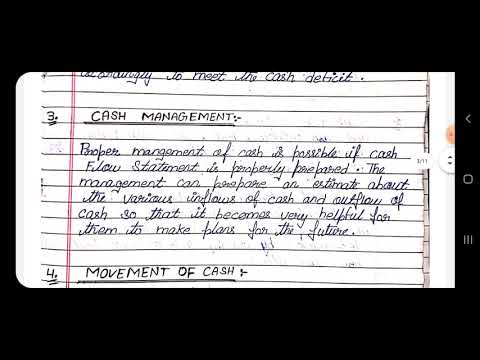 accordingly to meet the cash deficit.
3. CASH MANAGEMENT:-
Proper mangement of cash is possible if cash
Flow Statement is properly prepared. The
management can prepare an estimate about
the various inflows of cash and outflow of
cash so that it becomes very helpful for
them to make plans for the future.
3/11
4. MOVEMENT OF CASH:-